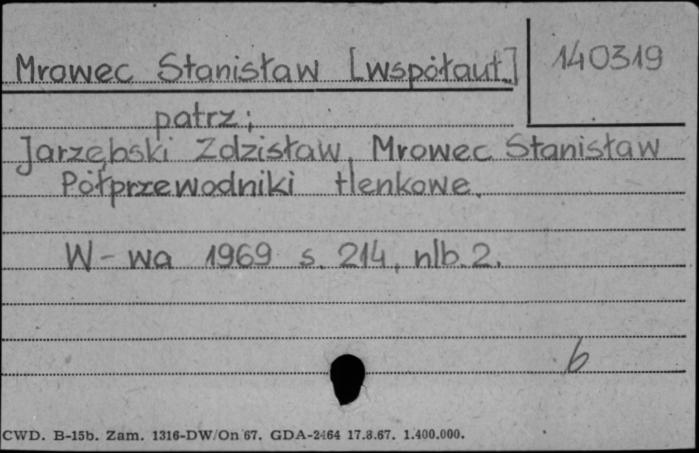 Mrowec Stanisław [współaut.] 140319
patrz;
Jarzębski Zdzisław, Mrowec Stanisław
Półprzewodniki tlenkowe.
W-wa 1969 s. 214, nlb. 2.
b
CWD. B-15b. Zam. 1316-DW/On 67. GDA-2464 17.8.67. 1.400.000.